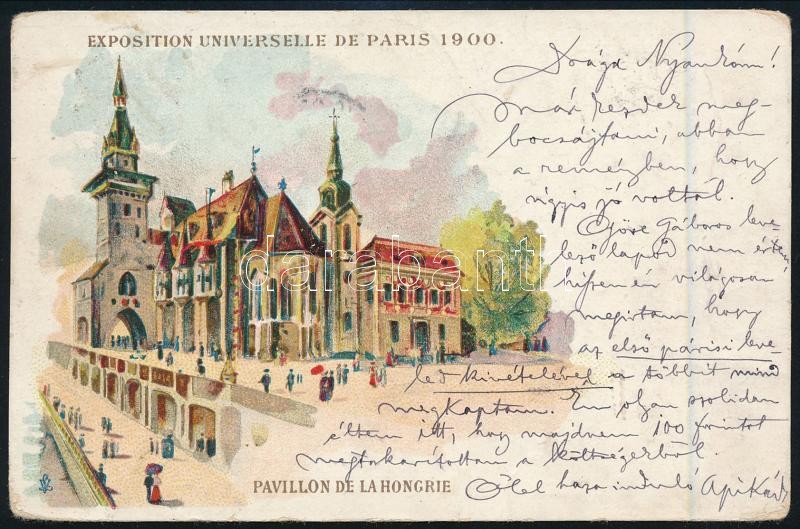 EXPOSITION UNIVERSELLE DE PARIS 1900.
Drága Nyankóm!
Már kezdek meg-
bocsájtani, abban
a reményben, hogy
úgyis jó voltál.
Göre Gáboros leve-
lező lapod nem értem,
hiszen én világosan
megirtam, hogy
az első párisi leve-
led kivételével a többit mind
megkaptam. Én olyan szolidan
éltem itt, hogy majdnem 100 forintot
megtakarítottam a költségekből.
Ölel haza induló Apikád
darabanth
PAVILLON DE LA HONGRIE